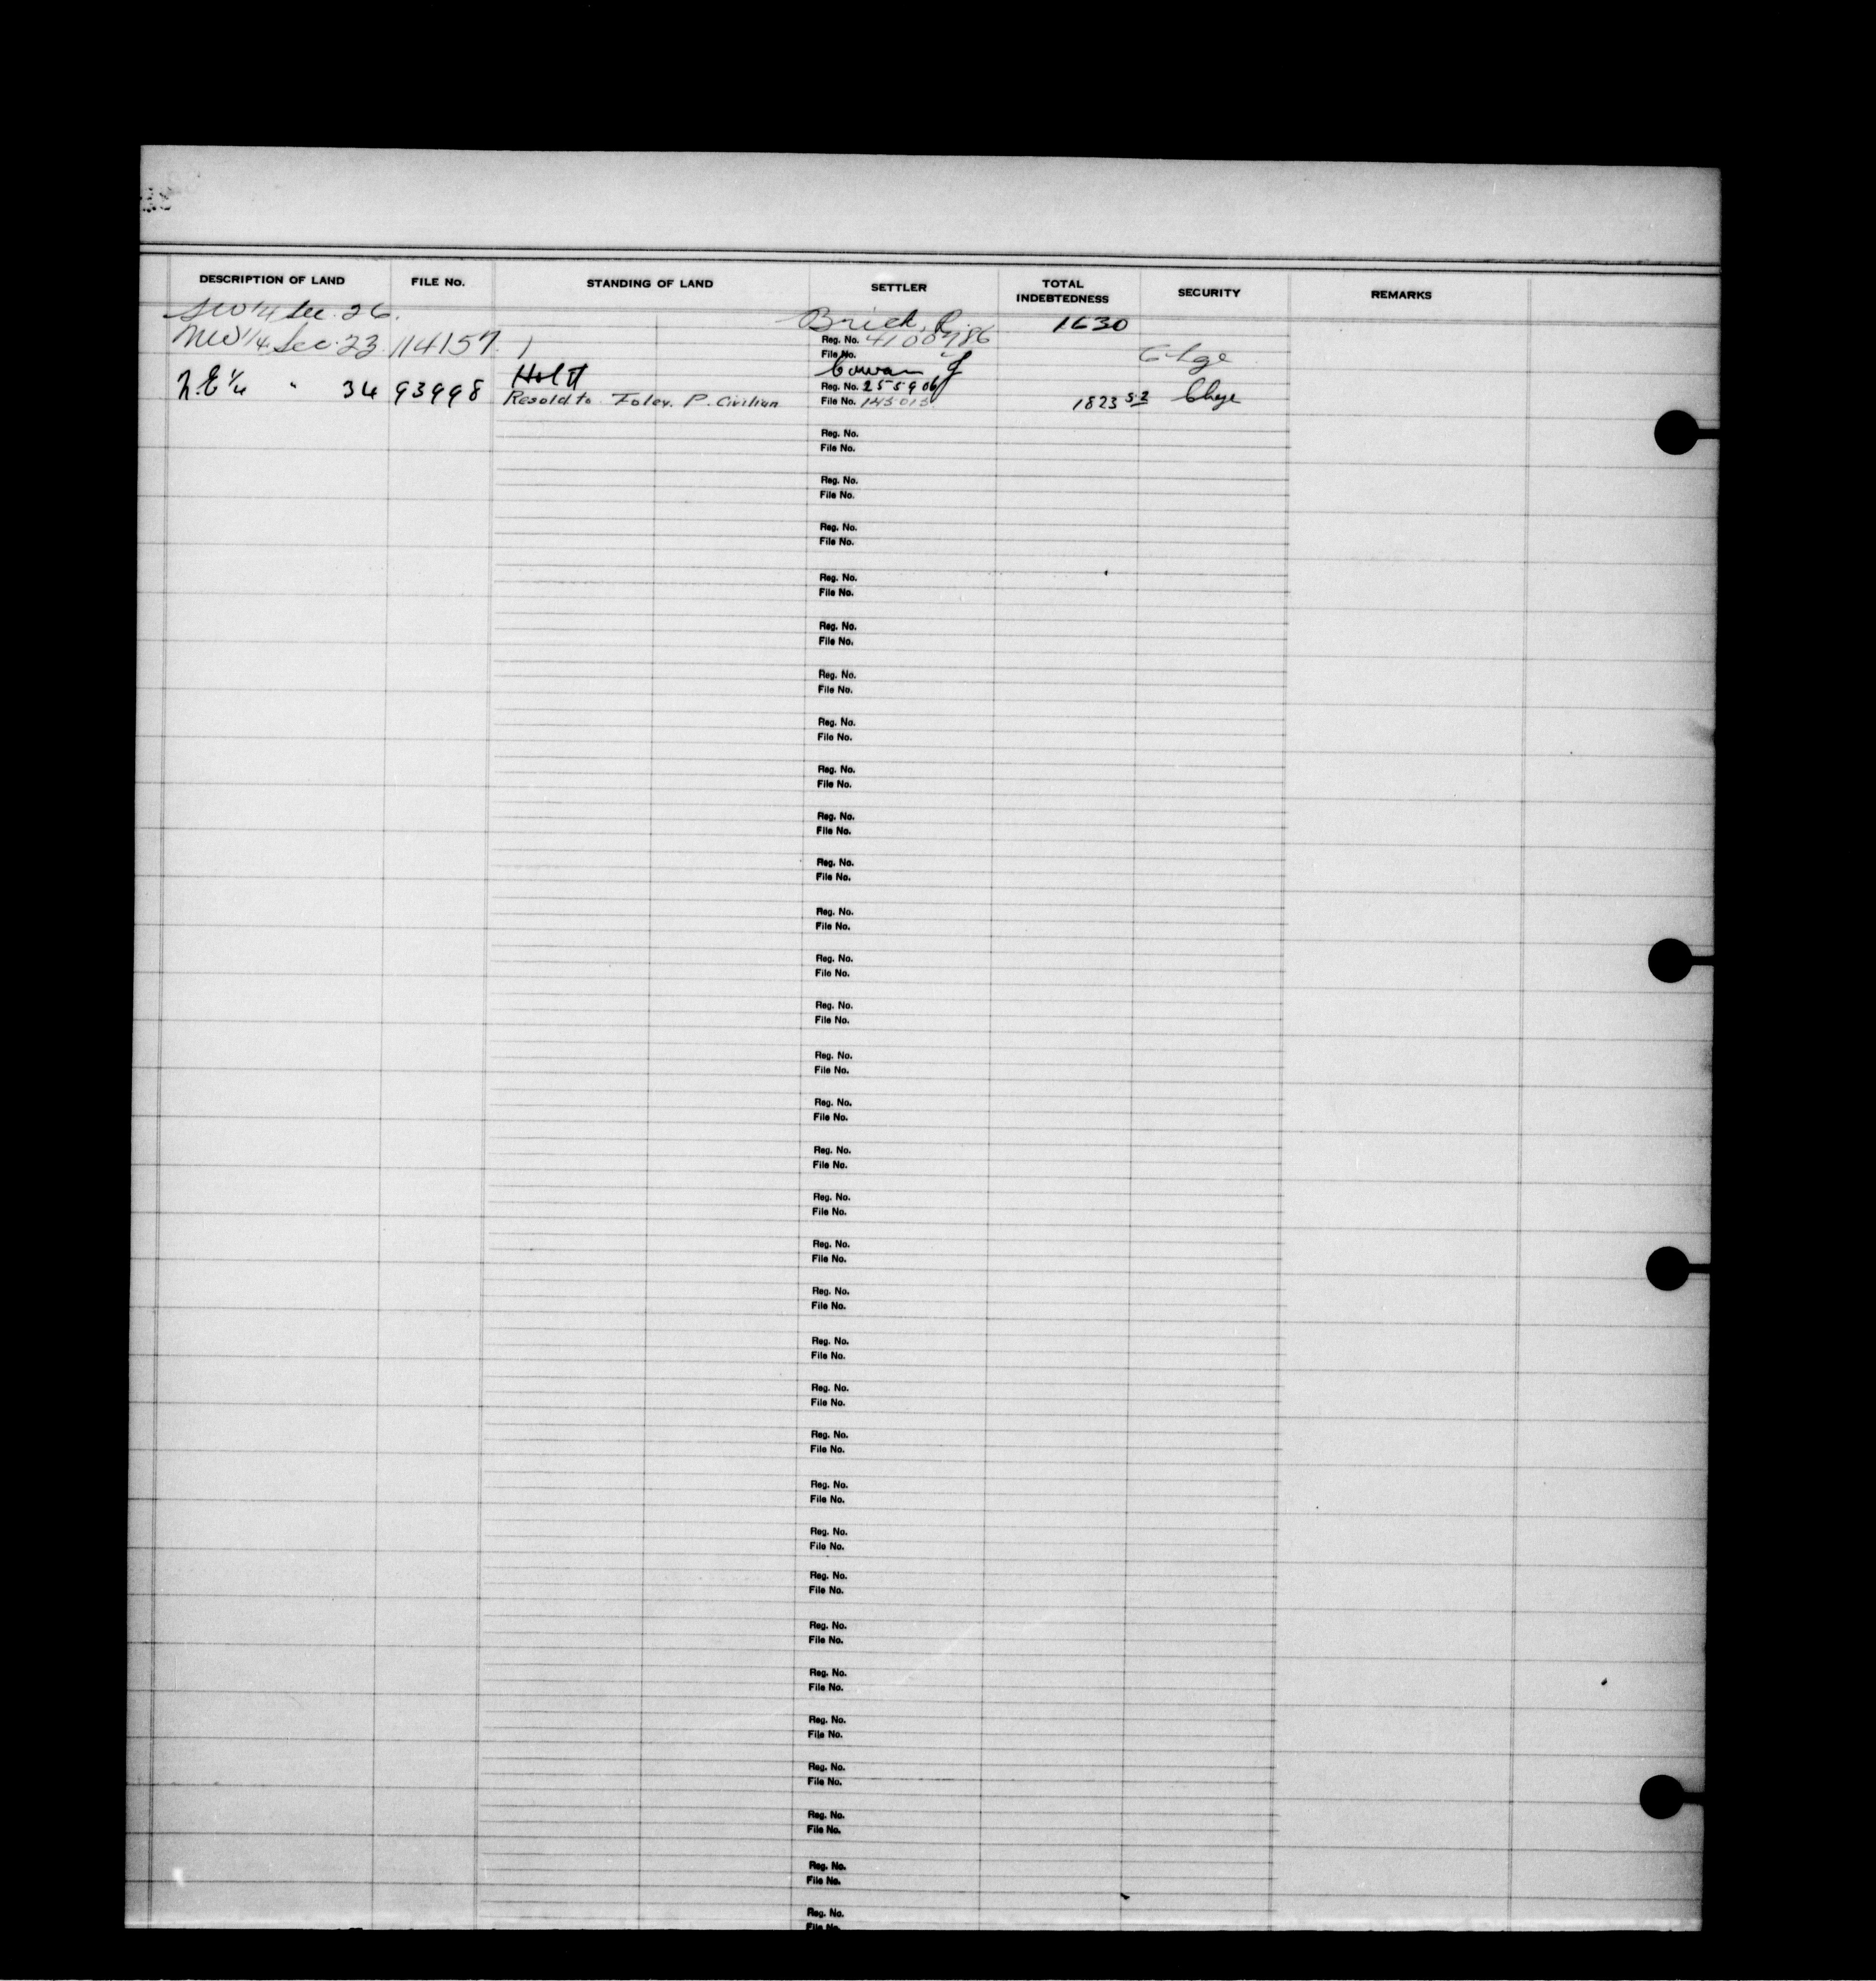 DESCRIPTION OF LAND FILE No. STANDING OF LAND SETTLER TOTAL INDEBTEDNESS SECURITY REMARKS
SW 1/4 Sec. 26. Brick, R. 1630
NW 1/4 Sec. 23. 114157. Reg. No. 4100786
File No. Chge
N.E 1/4 " 34 93998 Holtt Cowan J
Reg. No. 255906
Resold to Foley. P. Civilian File No. 145013 1823 52 Chge
Reg. No.
File No.
Reg. No.
File No.
Reg. No.
File No.
Reg. No.
File No.
Reg. No.
File No.
Reg. No.
File No.
Reg. No.
File No.
Reg. No.
File No.
Reg. No.
File No.
Reg. No.
File No.
Reg. No.
File No.
Reg. No.
File No.
Reg. No.
File No.
Reg. No.
File No.
Reg. No.
File No.
Reg. No.
File No.
Reg. No.
File No.
Reg. No.
File No.
Reg. No.
File No.
Reg. No.
File No.
Reg. No.
File No.
Reg. No.
File No.
Reg. No.
File No.
Reg. No.
File No.
Reg. No.
File No.
Reg. No.
File No.
Reg. No.
File No.
Reg. No.
File No.
Reg. No.
File No.
Reg. No.
File No.
Reg. No.
File No.
Reg. No.
File No.